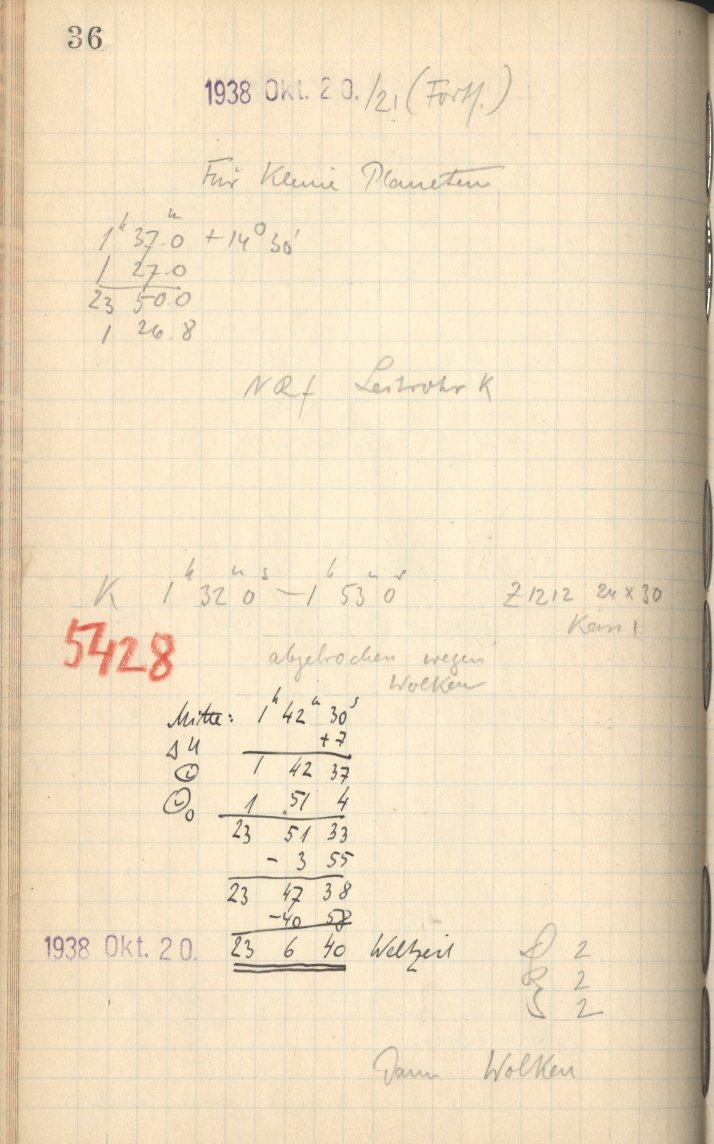 36
1938 Okt. 20./21 (Forts.)
Für Kleine Planeten
1ʰ 37.0ᵐ +14° 30'
1 27.0
23 50.0
1 26.8
Leitrohr K
K 1ʰ 32ᵐ 0ˢ – 1ʰ 53ᵐ 0ˢ Z 1212 24 x 30
5428
abgebrochen wegen
Wolken
Mitte: 1ʰ 42ᵐ 30ˢ
Δu +7
1 42 37
1 51 4
23 51 33
- 3 55
23 47 38
-40 58
1938 Okt. 20. 23 6 40 Weltzeit 2
2
2
Dann Wolken